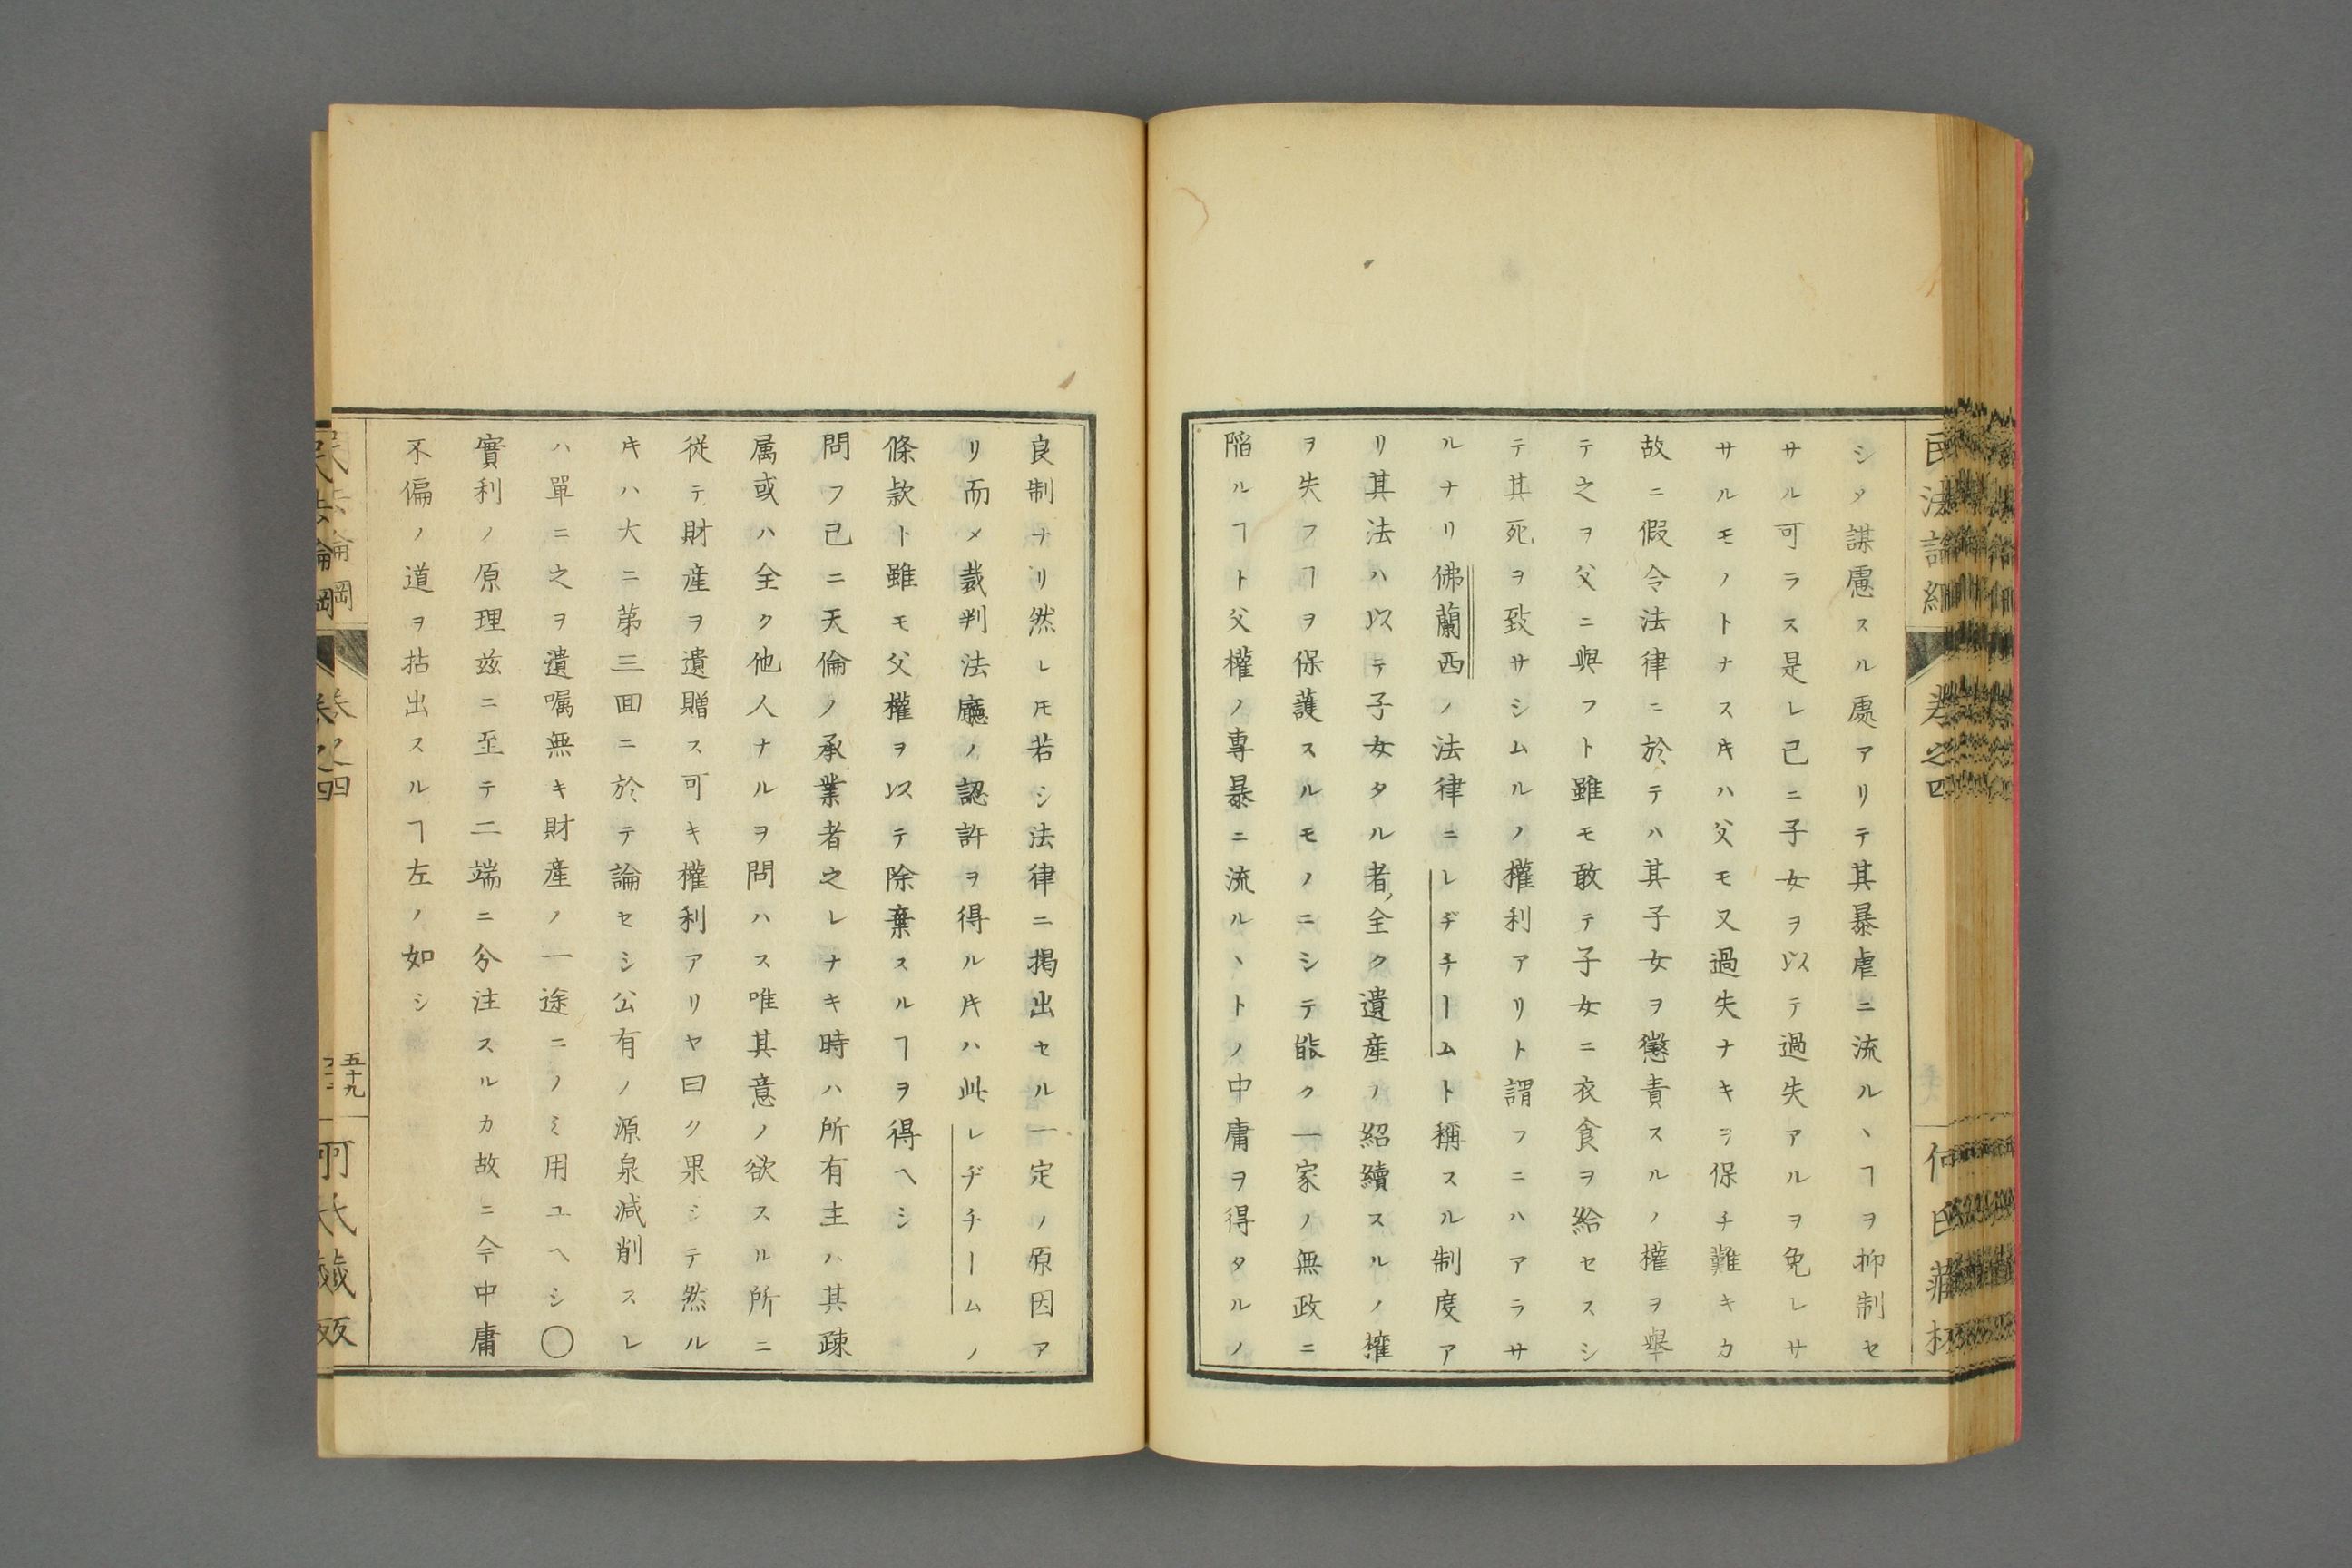 シタ謀慮スル處アリテ其暴虐ニ流ルヽヿヲ抑制セ
サル可ラス是レ已ニ子女ヲ以テ過失アルヲ免レサ
サルモノトナスキハ父モ又過失ナキヲ保チ難キカ
故ニ假令法律ニ於テハ其子女ヲ懲責スルノ權ヲ擧
テ之ヲ父ニ與フト雖モ敢テ子女ニ衣食ヲ給セスシ
テ其死ヲ致サシムルノ權利アリト謂フニハアラサ
ルナリ佛蘭西ノ法律ニレヂチームト稱スル制度ア
リ其法ハ以テ子女タル者全ク遺産ノ紹續スルノ權
ヲ失フヿヲ保護スルモノニシテ能ク一家ノ無政ニ
陷ルヿト父權ノ專暴ニ流ルヽトノ中庸ヲ得タルノ
良制ナリ然レ𪜈若シ法律ニ掲出セル一定ノ原因ア
リ而メ裁判法廳ノ認許ヲ得ルキハ此レヂチームノ
條款ト雖モ父權ヲ以テ除棄スルヿヲ得ヘシ
問フ已ニ天倫ノ承業者之レナキ時ハ所有主ハ其疎
属或ハ全ク他人ナルヲ問ハス唯其意ノ欲スル所ニ
従テ財産ヲ遺贈ス可キ權利アリヤ曰ク果シテ然ル
キハ大ニ第三囬ニ於テ論セシ公有ノ源泉減削スレ
ハ單ニ之ヲ遺嘱無キ財産ノ一途ニノミ用ユヘシ〇
實利ノ原理茲ニ至テ二端ニ分注スルカ故ニ今中庸
不偏ノ道ヲ拈出スルヿ左ノ如シ
五十九